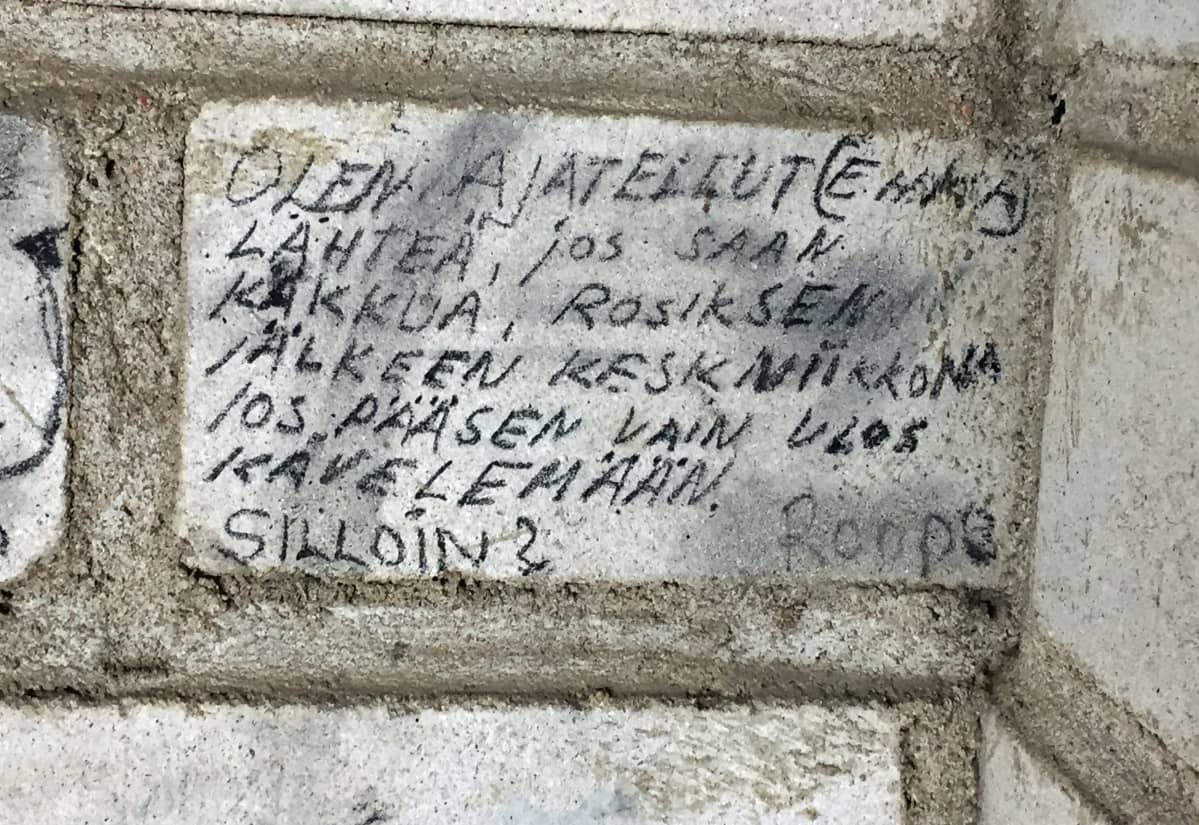 OLEN AJATELLUT (EMMA)
LÄHTEÄ, JOS SAAN
KAKKUA, ROSIKSEN
JÄLKEEN KESKMIIKKONA
JOS PÄÄSEN VAIN ULOS
KÄVELEMÄÄN.
SILLOIN?